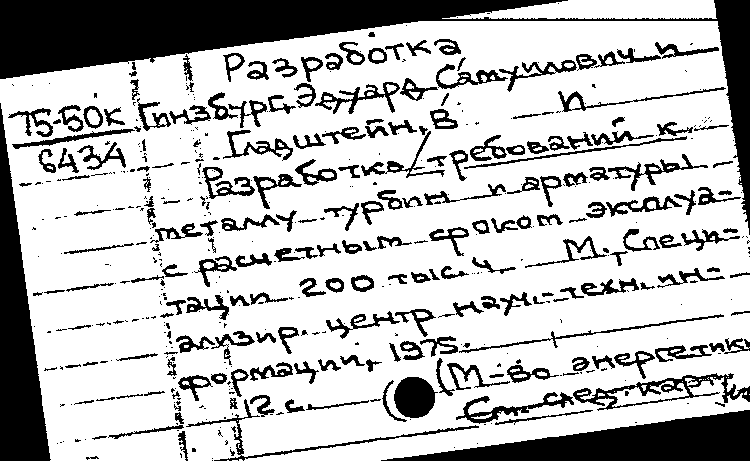 Разработка
75-50к
6434
Гинзбург, Эдуард Самуилович и
Гладштейн, В. И.
Разработка требований к
металлу турбин и арматуры
с расчетным сроком эксплуа-
тации 200 тыс. ч М., Специ-
ализир. центр науч.-техн. ин-
формации, 1975.
12 с. (М-во энергетики
См. след. карт.